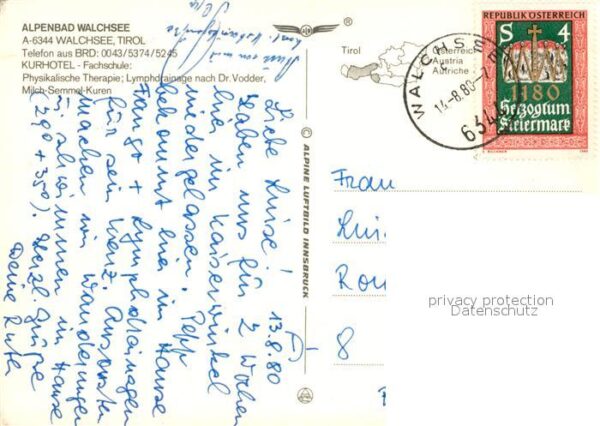 ALPENBAD WALCHSEE
A-6344 WALCHSEE, TIROL
Telefon aus BRD: 0043/5374/5245
KURHOTEL - Fachschule:
Physikalische Therapie; Lymphdrainage nach Dr. Vodder,
Milch-Semmel-Kuren
Auch von mir
13.8.80
Liebe Luise!
Haben uns für 2 Wochen
hier im Kaiserwinkel
niedergelassen. Pepp
bekommt hier im Hause
Fango + Lymphdrainagen
für sein Kreuz. Ansonsten
machen wir Wanderungen
+ schwimmen im Hause
(29° + 35°). Herzl. Grüße
Deine Ruth
© ALPINE LUFTBILD INNSBRUCK
Tirol
Österreich
Austria
Autriche
WALCHSEE
14.-8.80-7
634
REPUBLIK ÖSTERREICH
S 4
1180
Herzogtum
Steiermark
1980
Frau
privacy protection
Datenschutz
8